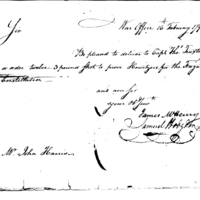 Sir
War Office 16 February 179
Be pleased to deliver to Capt Tho.s Truxt
an order twelve 3 pound Shot to prove Howitzers for the Friga
Constellation
and am Sir
your Ob Serv
James McHenry
Samuel Hodgdon
Mr John Harris